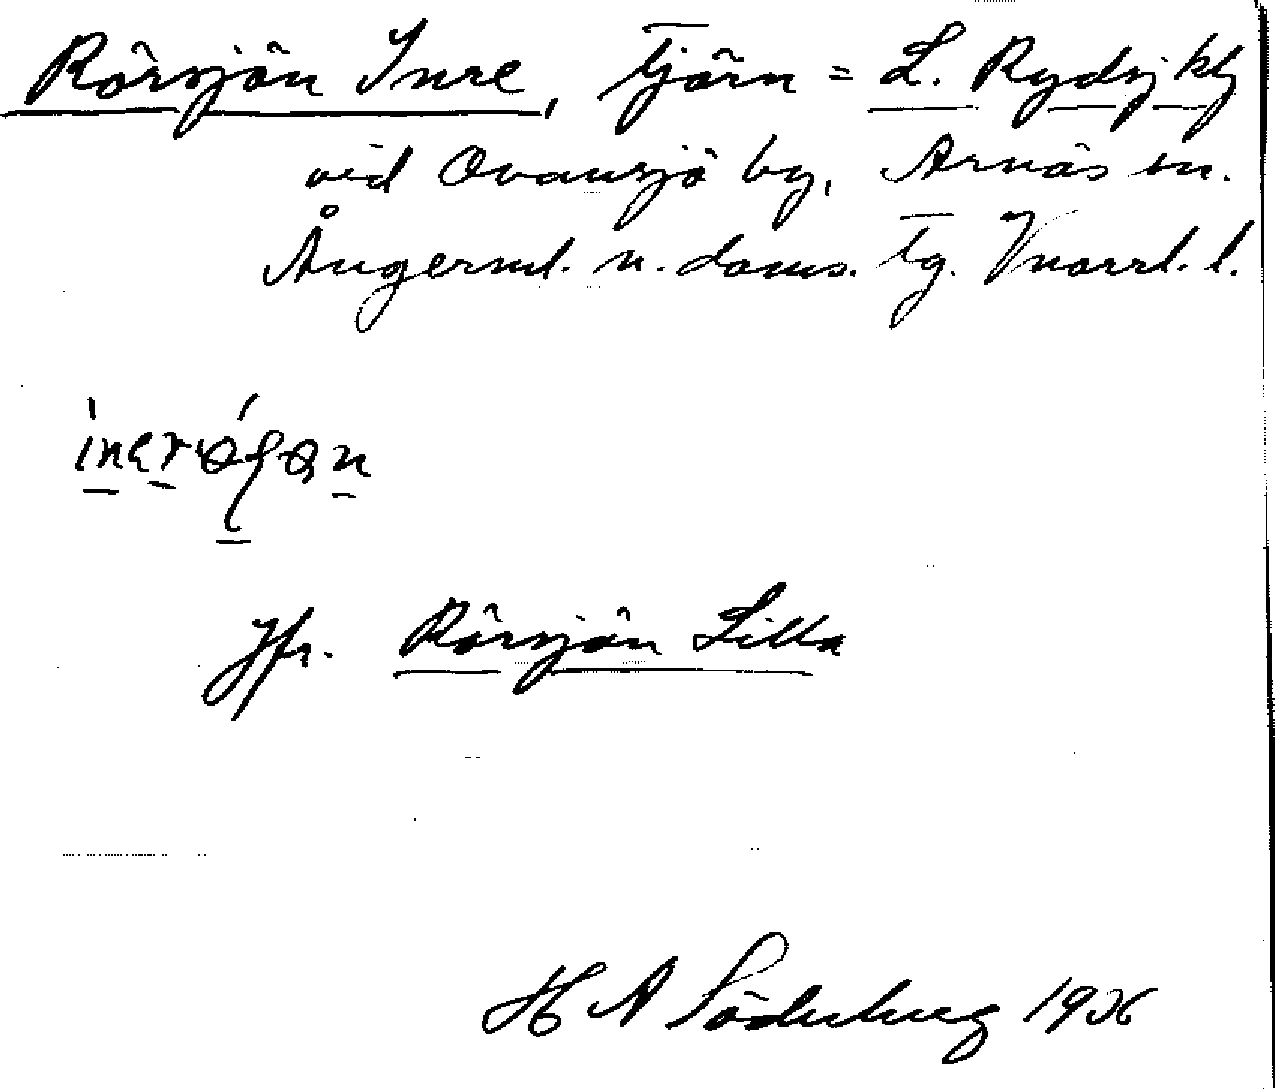 Rörsjön Inre, tjärn = L. Rydsj ktj
vid Ovansjö by, Arnäs sn.
Ångerml. n. doms. tg. Vnorrl. l.
Jfr. Rörsjön Lilla
H A Söderberg 1926